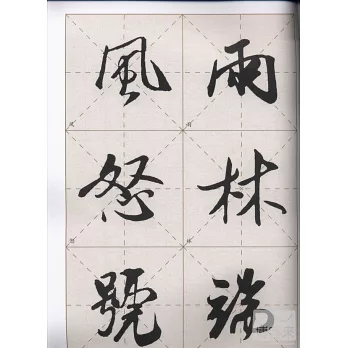 雨林端
風怒號